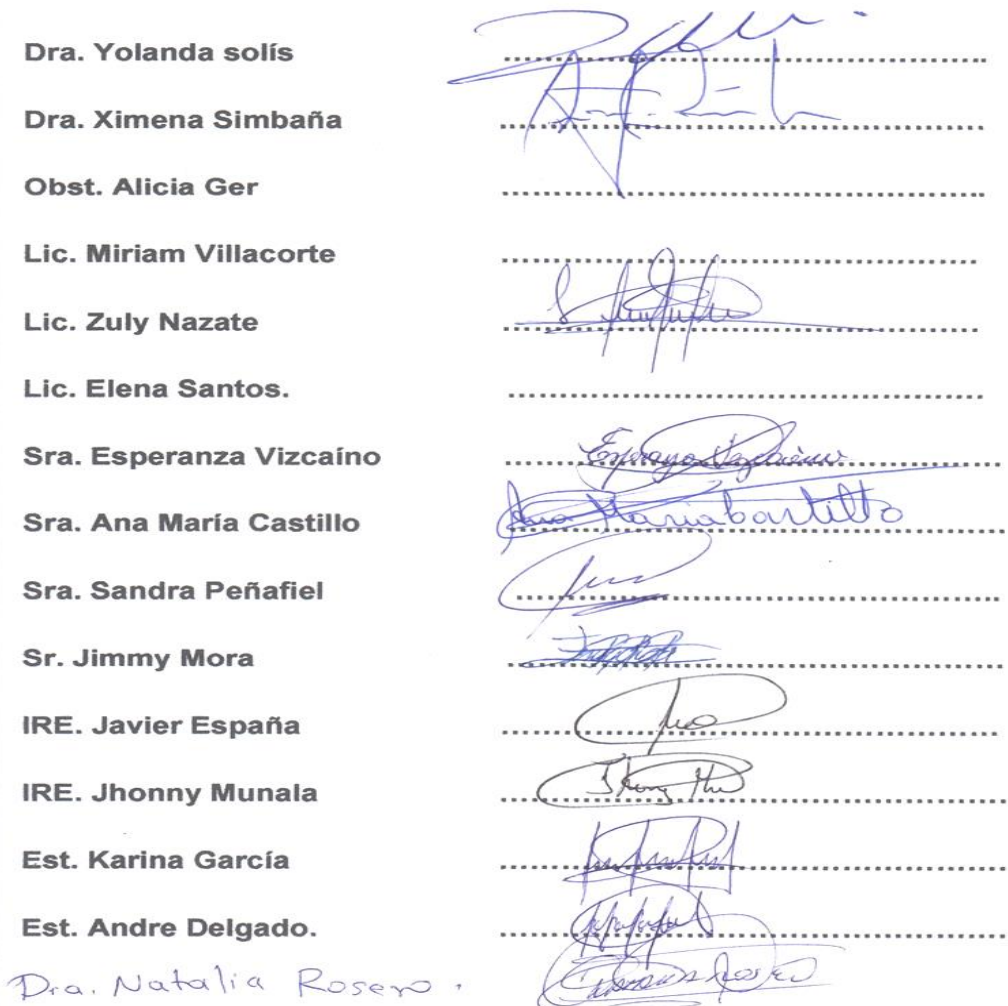 Dra. Yolanda solís
Dra. Ximena Simbaña
Obst. Alicia Ger
Lic. Miriam Villacorte
Lic. Zuly Nazate
Lic. Elena Santos.
Sra. Esperanza Vizcaíno Esperanza Vizcaíno
Sra. Ana María Castillo Ana Maria Castillo
Sra. Sandra Peñafiel
Sr. Jimmy Mora
IRE. Javier España
IRE. Jhonny Munala
Est. Karina García
Est. Andre Delgado.
Dra. Natalia Rosero.